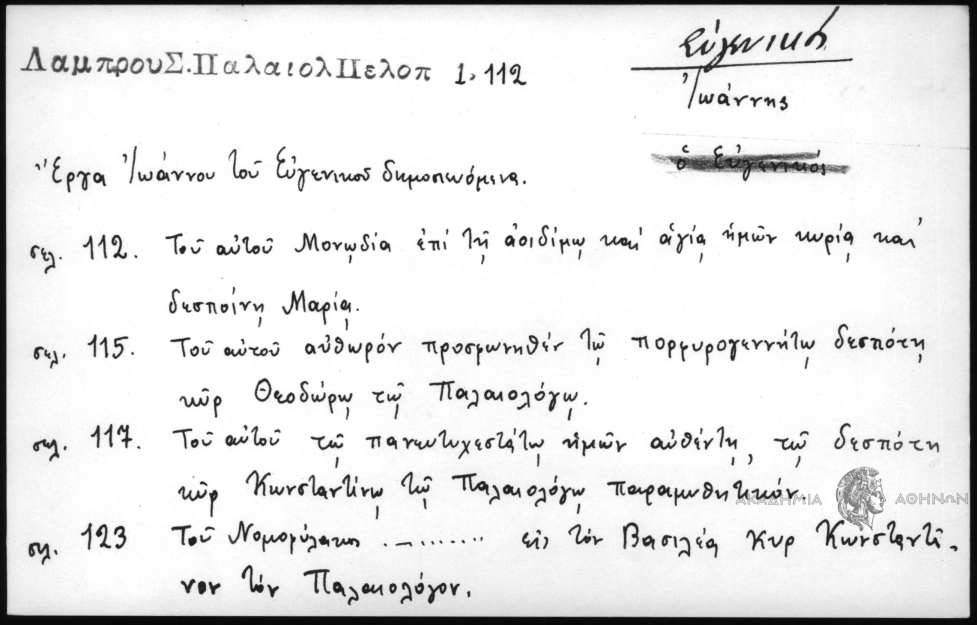 Λαμπρου Σ. Παλαιολ Πελοπ 1. 112
Εὐγενικός
Ἰωάννης
ὁ Εὐγενικός
Ἔργα Ἰωάννου τοῦ Εὐγενικοῦ δημοσιευόμενα.
σελ. 112. Τοῦ αὐτοῦ Μονῳδία ἐπί τῇ ἀοιδίμῳ καί ἁγίᾳ ἡμῶν κυρίᾳ καί
δεσποίνῃ Μαρίᾳ.
σελ. 115. Τοῦ αὐτοῦ αὐθωρόν προσφωνηθέν τῷ πορφυρογεννήτῳ δεσπότῃ
κῦρ Θεοδώρῳ τῷ Παλαιολόγῳ.
σελ. 117. Τοῦ αὐτοῦ τῷ πανευτυχεστάτῳ ἡμῶν αὐθέντῃ, τῷ δεσπότῃ
κῦρ Κωνσταντίνῳ τῷ Παλαιολόγῳ παραμυθητικόν.
ΑΚΑΔΗΜΙΑ ΑΘΗΝΩΝ
σελ. 123 Τοῦ Νομοφύλακος ........... εἰς τόν Βασιλέα Κυρ Κωνσταντῖ-
νον τόν Παλαιολόγον.